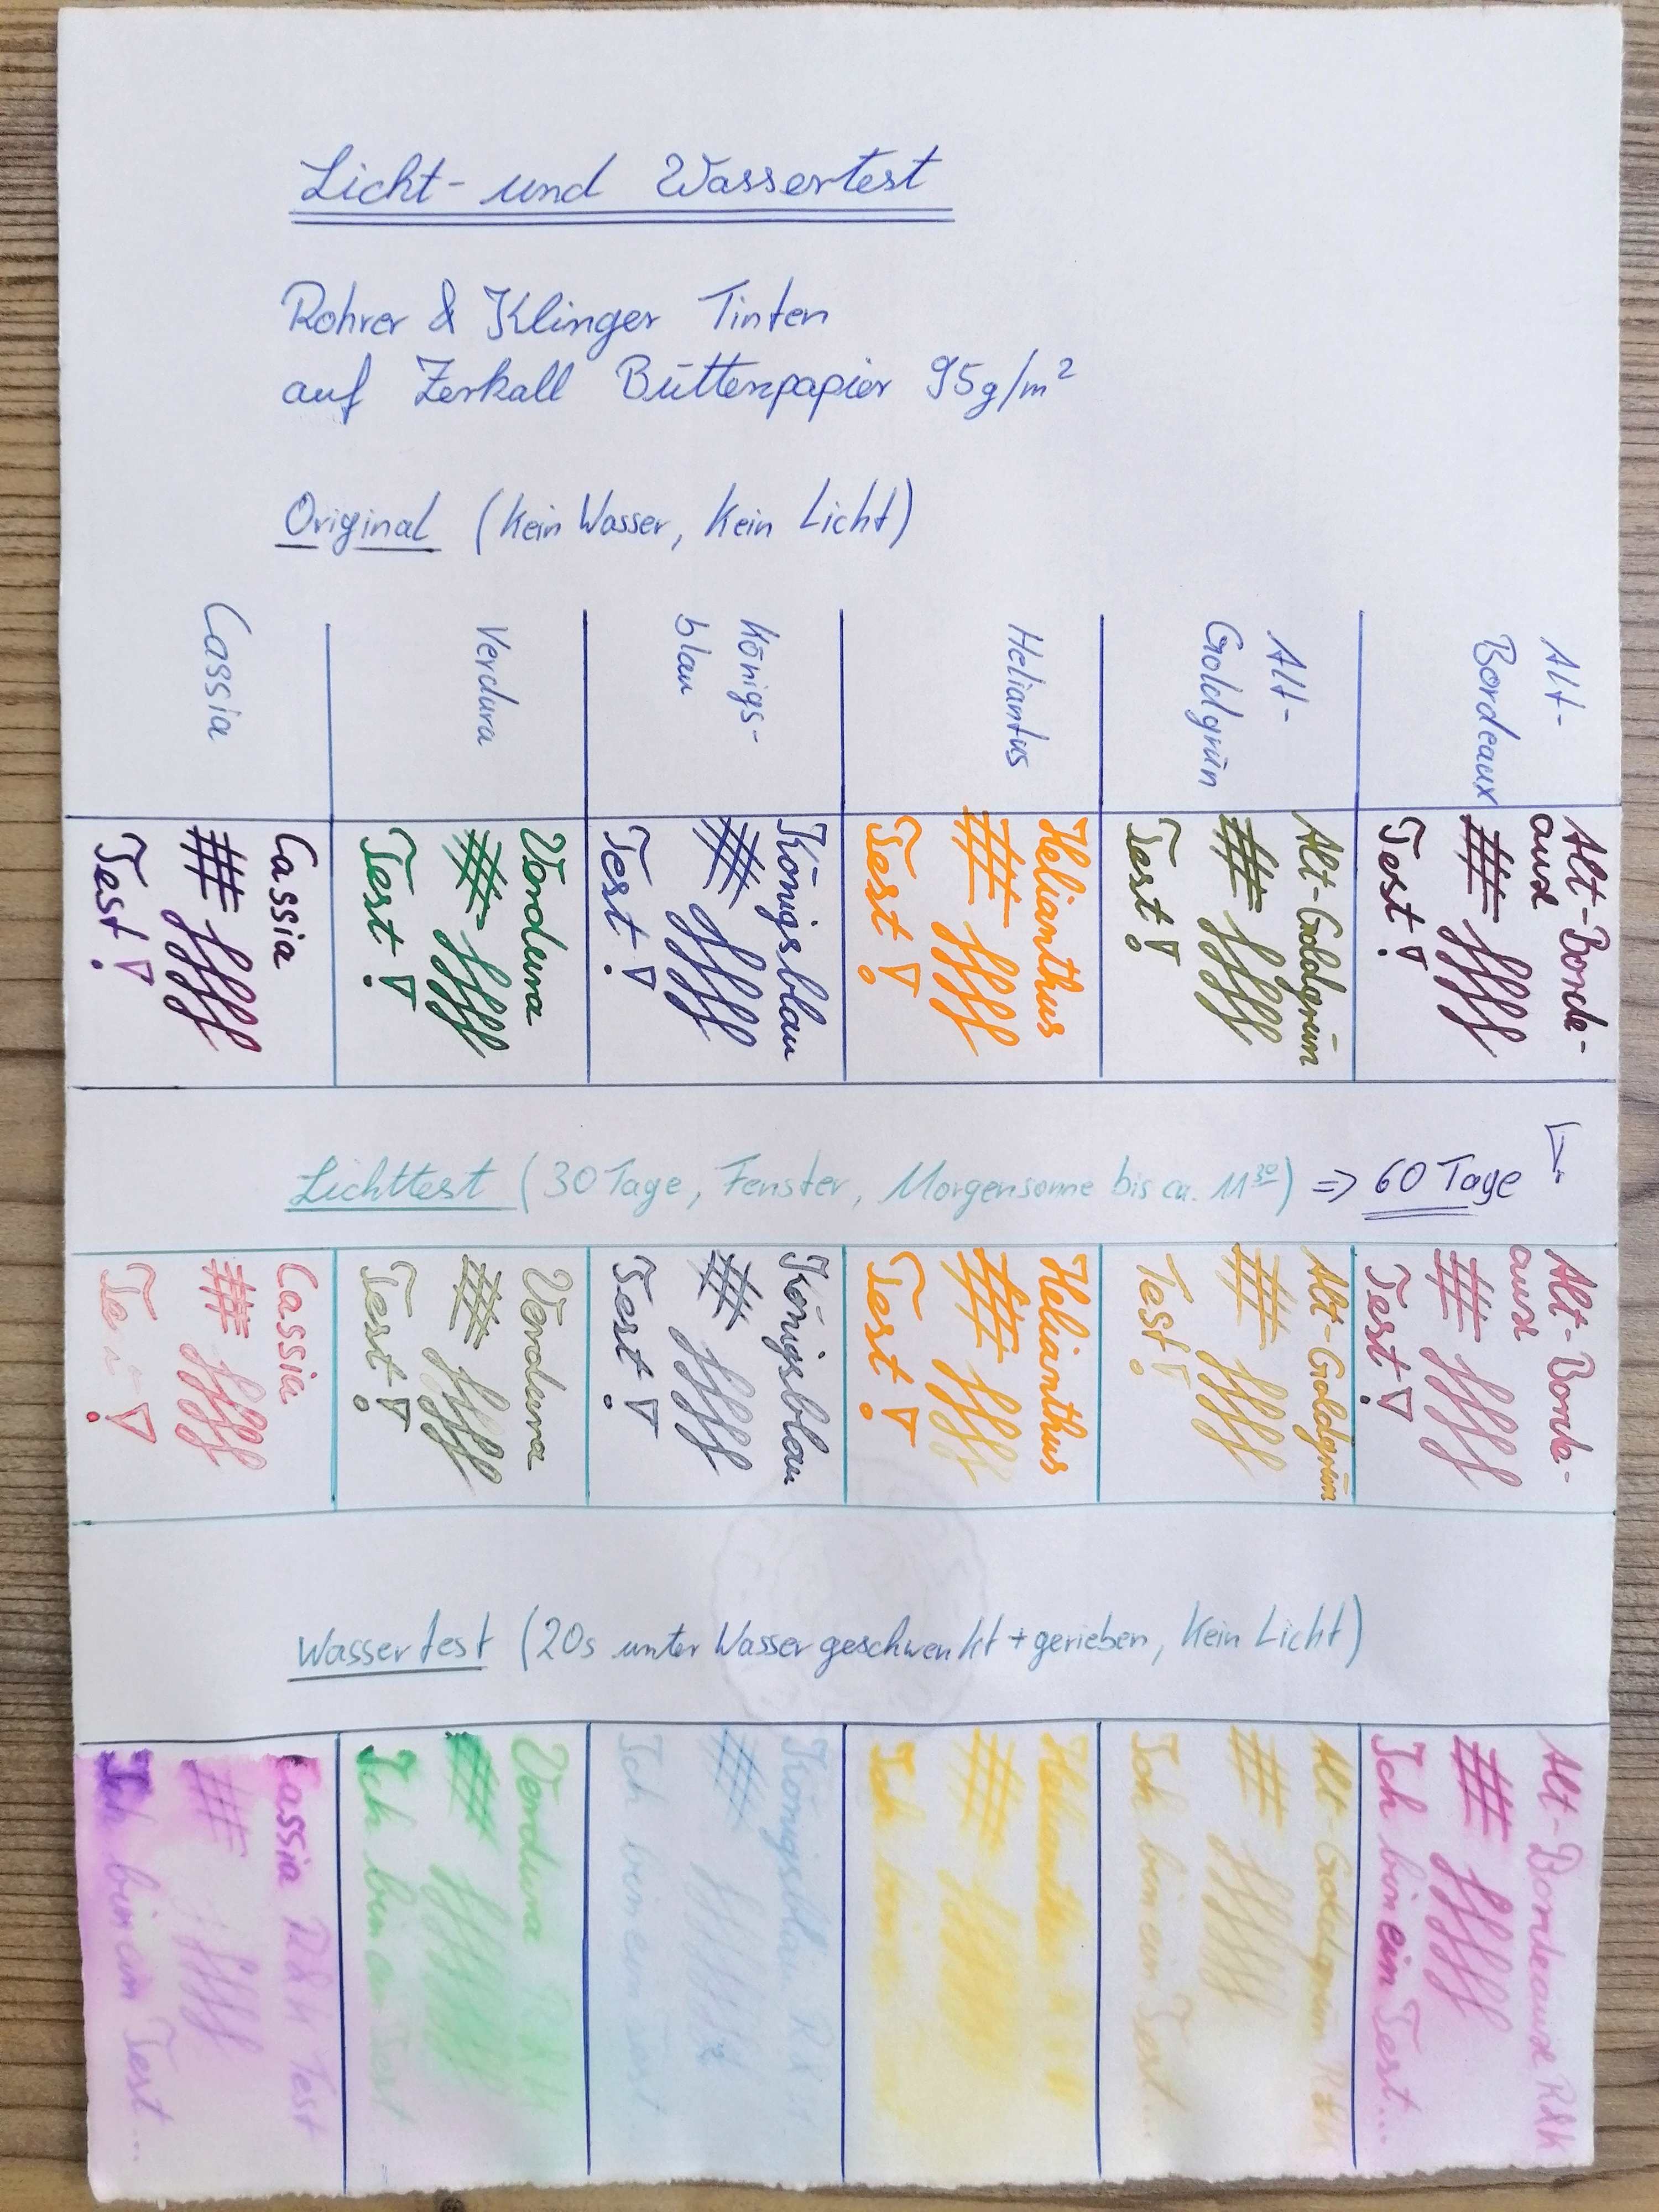 Licht- und Wassertest
Rohrer & Klinger Tinten
auf Zerkall Büttenpapier 95g/m²
Original (Kein Wasser, Kein Licht)
Cassia
Verdura
Königs-
blau
Heliantus
Alt-
Goldgrün
Alt-
Bordeaux
Cassia
Test!
Verdura
Test!
Königsblau
Test!
Helianthus
Test!
Alt-Goldgrün
Test!
Alt-Borde-
aux
Test!
Lichttest (30 Tage, Fenster, Morgensonne bis ca. 11³⁰) => 60 Tage !
Cassia
Te !
Verdura
Test!
Königsblau
Test!
Helianthus
Test!
Alt-Goldgrün
Test!
Alt-Borde-
aux
Test!
Wassertest (20s unter Wasser geschwenkt + gerieben, Kein Licht)
Cassia R&K Test
Ich bin ein Test...
Verdura R&K
Ich bin ein Test
Königsblau R&K
Ich bin ein Test...
Helianthus
Ich bin
Alt-Goldgrün R&K
Ich bin ein Test...
Alt-Bordeaux R&K
Ich bin ein Test...